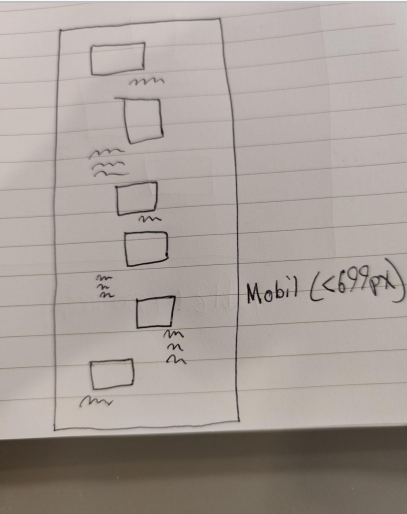 Mobil (<699px)